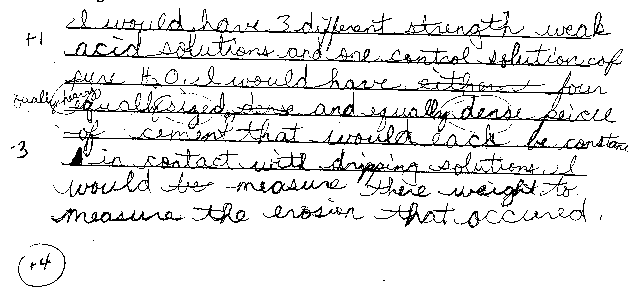 I would have 3 different strength weak
+1
acid solutions and one control solution of
pure H2O. I would have either four
equally heavy
equally sized, dense and equally dense peice
of cement that would each be constant
-3
in contact with dripping solutions. I
would be measure there weight to
measure the erosion that occured.
+4